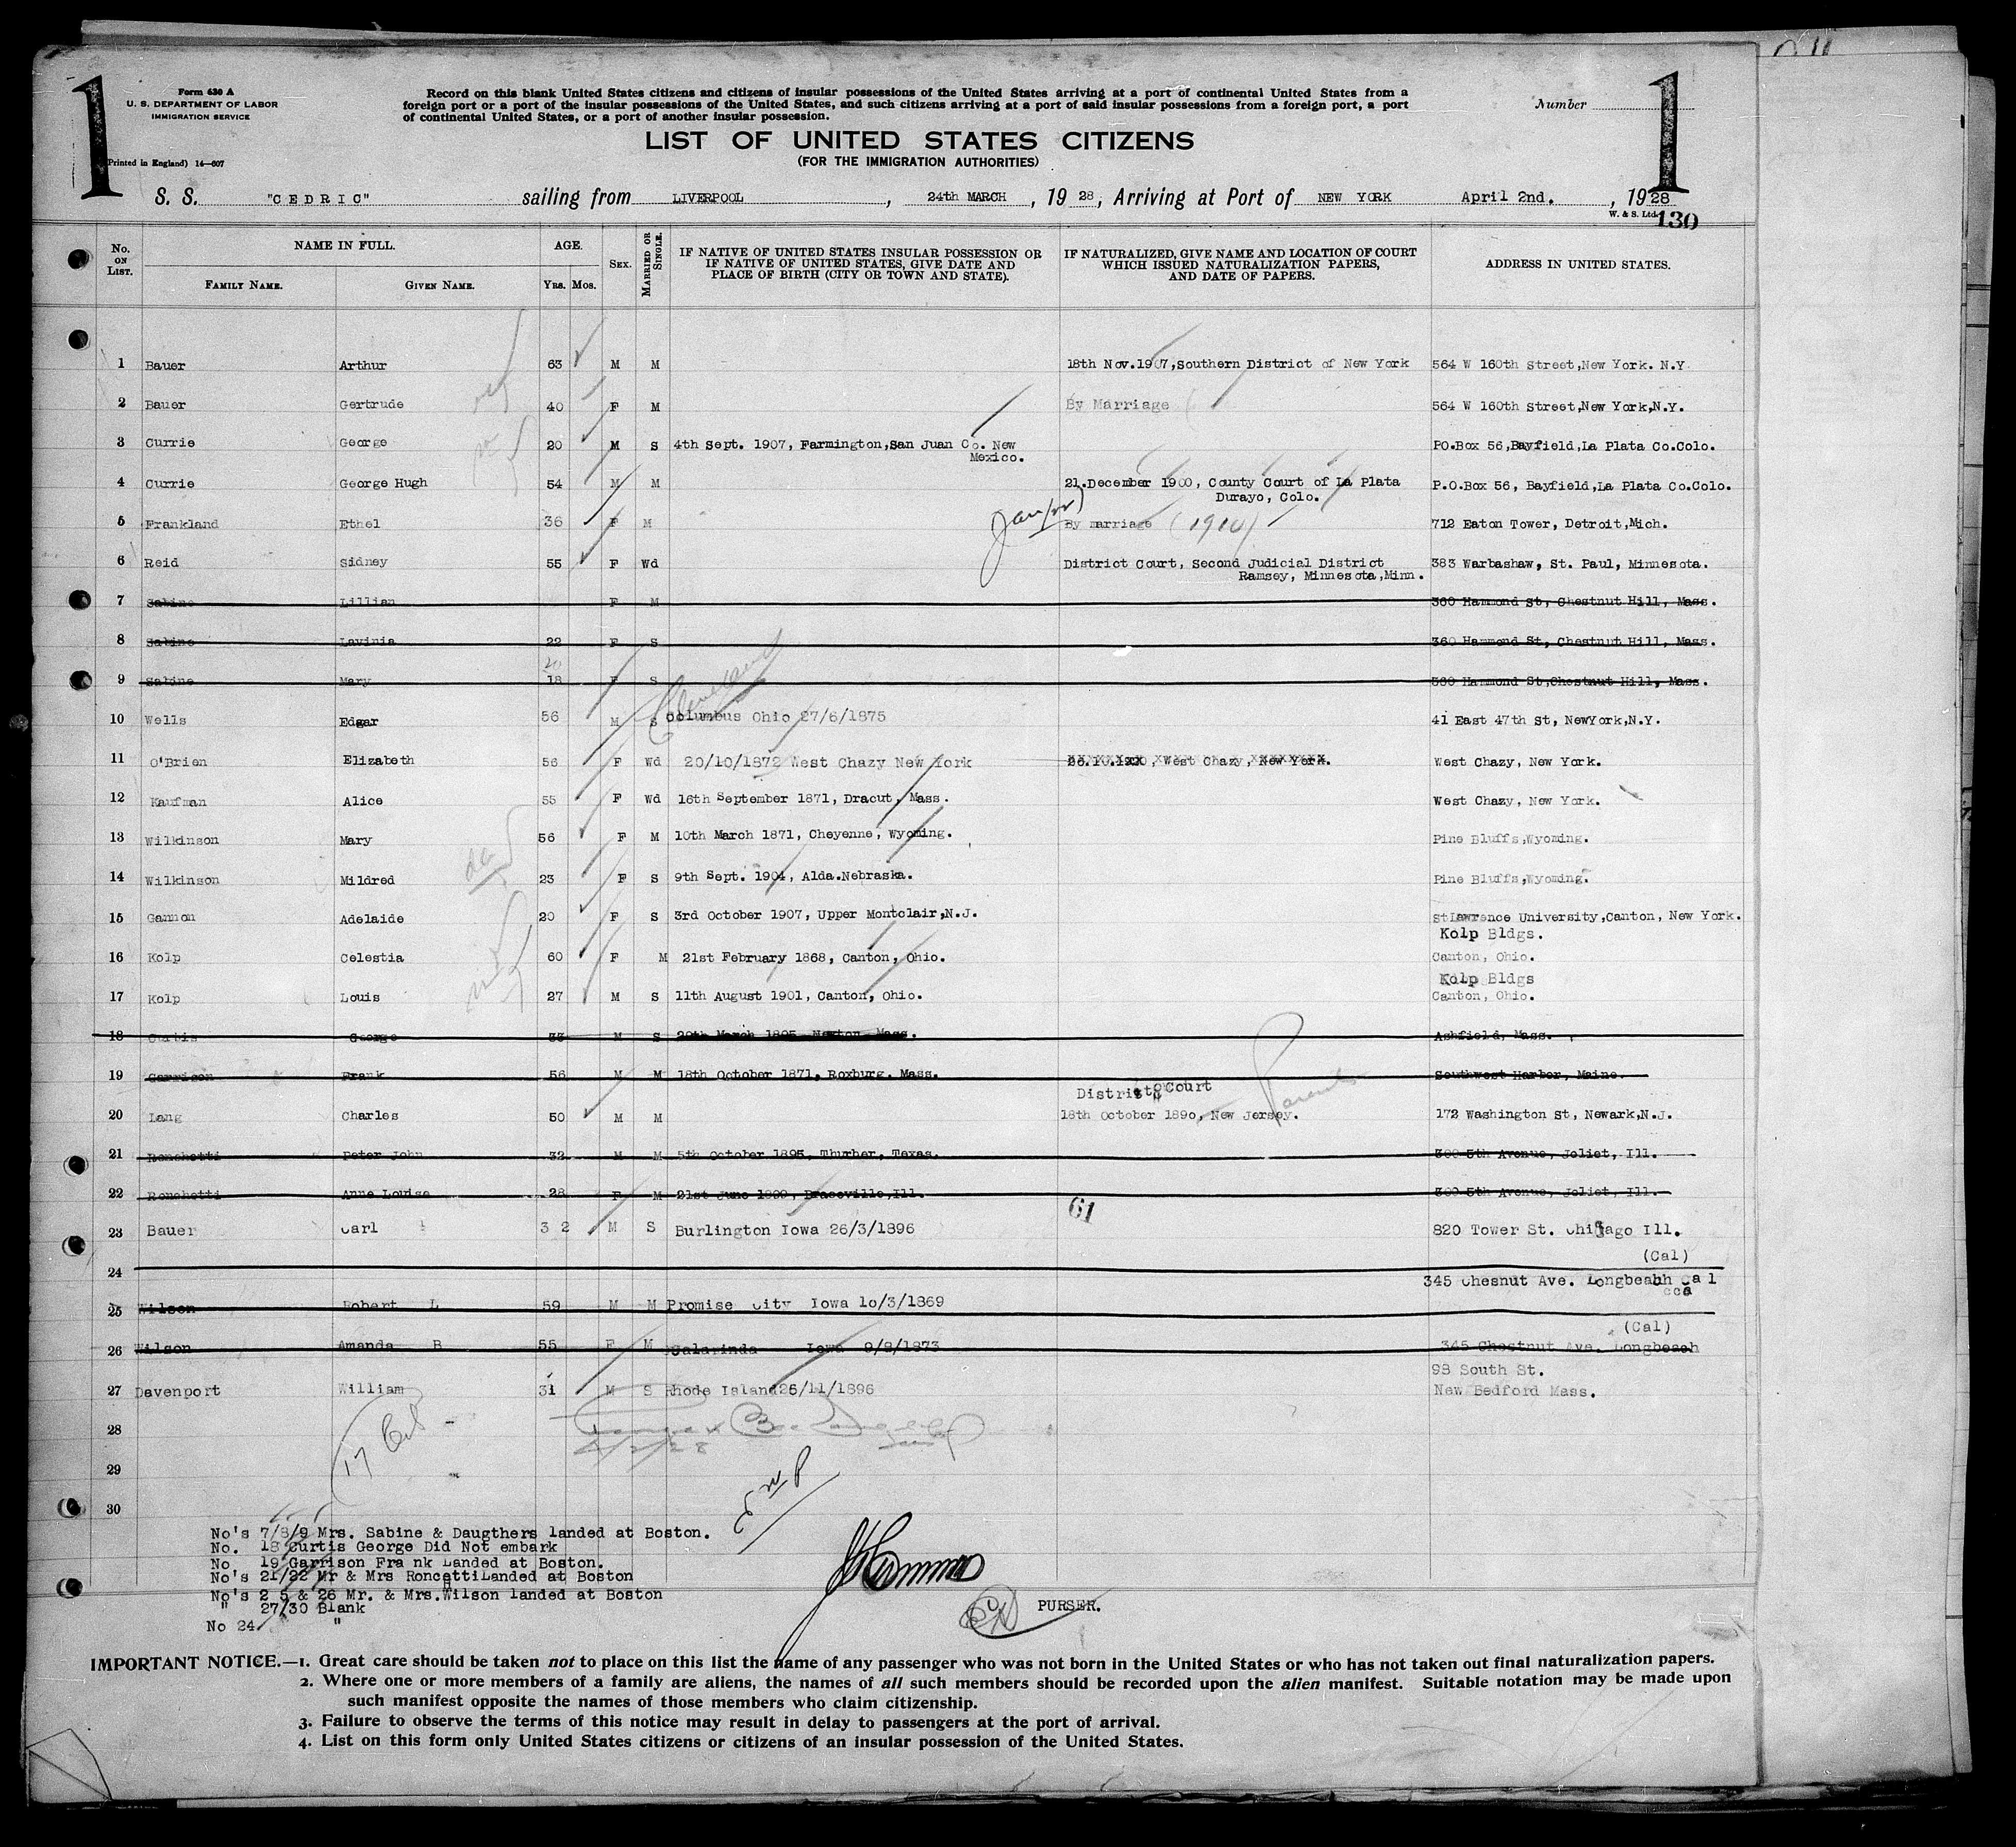 1
Form 630 A
U. S. DEPARTMENT OF LABOR
IMMIGRATION SERVICE
(Printed in England) 14—607
Record on this blank United States citizens and citizens of insular possessions of the United States arriving at a port of continental United States from a
foreign port or a port of the insular possessions of the United States, and such citizens arriving at a port of said insular possessions from a foreign port, a port
of continental United States, or a port of another insular possession.
Number
1
LIST OF UNITED STATES CITIZENS
(FOR THE IMMIGRATION AUTHORITIES)
S. S. "CEDRIC" sailing from LIVERPOOL, 24th MARCH, 19 28, Arriving at Port of NEW YORK April 2nd., 1928
W. & S. Ltd.
130
No. ON LIST. NAME IN FULL. FAMILY NAME. GIVEN NAME. AGE. YRS. MOS. SEX. MARRIED OR SINGLE.
IF NATIVE OF UNITED STATES INSULAR POSSESSION OR IF NATIVE OF UNITED STATES, GIVE DATE AND PLACE OF BIRTH (CITY OR TOWN AND STATE).
IF NATURALIZED, GIVE NAME AND LOCATION OF COURT WHICH ISSUED NATURALIZATION PAPERS, AND DATE OF PAPERS.
ADDRESS IN UNITED STATES.
1 Bauer Arthur 63 M M 18th Nov.1907,Southern District of New York 564 W 160th Street,New York. N.Y.
2 Bauer Gertrude 40 F M By Marriage 564 W 160th Street,New York,N.Y.
3 Currie George 20 M S 4th Sept. 1907, Farmington,San Juan Co. New PO.Box 56,Bayfield,La Plata Co.Colo.
Mexico.
4 Currie George Hugh 54 M M 21.December 1900, County Court of La Plata P.O.Box 56, Bayfield,La Plata Co.Colo.
Durayo, Colo.
5 Frankland Ethel 36 F M By marriage (1910) 712 Eaton Tower, Detroit,Mich.
6 Reid Sidney 55 F Wd District Court, Second Judicial District 383 Warbashaw, St. Paul, Minnesota.
Ramsey, Minnesota,Minn.
7 Sabine Lillian F M 360 Hammond St, Chestnut Hill, Mass.
8 Sabine Lavinia 22 F S 360 Hammond St, Chestnut Hill, Mass.
20
9 Sabine Mary 18 F S 360 Hammond St,Chestnut Hill, Mass.
Cleveland
10 Wells Edgar 56 M S Columbus Ohio 27/6/1875 41 East 47th St, NewYork,N.Y.
11 O'Brien Elizabeth 56 F Wd 20/10/1872 West Chazy New York West Chazy, New York. West Chazy, New York.
12 Kaufman Alice 55 F Wd 16th September 1871, Dracut, Mass. West Chazy, New York.
13 Wilkinson Mary 56 F M 10th March 1871, Cheyenne, Wyoming. Pine Bluffs,Wyoming.
14 Wilkinson Mildred 23 F S 9th Sept. 1904, Alda.Nebraska. Pine Bluffs,Wyoming.
15 Gannon Adelaide 20 F S 3rd October 1907, Upper Montclair,N.J. StLawrence University,Canton, New York.
Kolp Bldgs.
16 Kolp Celestia 60 F M 21st February 1868, Canton, Ohio. Canton, Ohio.
Kolp Bldgs
17 Kolp Louis 27 M S 11th August 1901, Canton, Ohio. Canton, Ohio.
18 Curtis George 33 M S 20th March 1895 Newton Mass. Ashfield, Mass.
19 Garrison Frank 56 M M 18th October 1871, Roxburg. Mass. Southwest Harbor, Maine.
District Court
Parents
20 Lang Charles 50 M M 18th October 1890, New Jersey. 172 Washington St, Newark,N.J.
21 Ronchetti Peter John 32 M M 5th October 1895, Thurber, Texas. 300 5th Avenue, Joliet, Ill.
22 Ronchetti Anne Louise 28 F M 21st June 1899, Braceville,Ill. 300 5th Avenue, Joliet, Ill.
61
23 Bauer Carl 3 2 M S Burlington Iowa 26/3/1896 820 Tower St. Chicago Ill.
(Cal)
24
345 Chesnut Ave. Longbeach Cal
25 Wilson Robert L 59 M M Promise City Iowa 10/3/1869
(Cal)
26 Wilson Amanda B 55 F M Iowa 9/8/1873 345 Chestnut Ave. Longbeach
98 South St.
27 Davenport William 31 M S Rhode Island 26/11/1896 New Bedford Mass.
28
4/2/28
29
30
No's 7/8/9 Mrs. Sabine & Daugthers landed at Boston.
No. 18 Curtis George Did Not embark
No 19 Garrison Fra nk Landed at Boston.
No's 21/22 Mr & Mrs RoncettiLanded at Boston
No's 2 5 & 26 Mr. & Mrs.Wilson landed at Boston
" 27/30 Blank
No 24 "
PURSER.
IMPORTANT NOTICE.—1. Great care should be taken not to place on this list the name of any passenger who was not born in the United States or who has not taken out final naturalization papers.
2. Where one or more members of a family are aliens, the names of all such members should be recorded upon the alien manifest. Suitable notation may be made upon
such manifest opposite the names of those members who claim citizenship.
3. Failure to observe the terms of this notice may result in delay to passengers at the port of arrival.
4. List on this form only United States citizens or citizens of an insular possession of the United States.